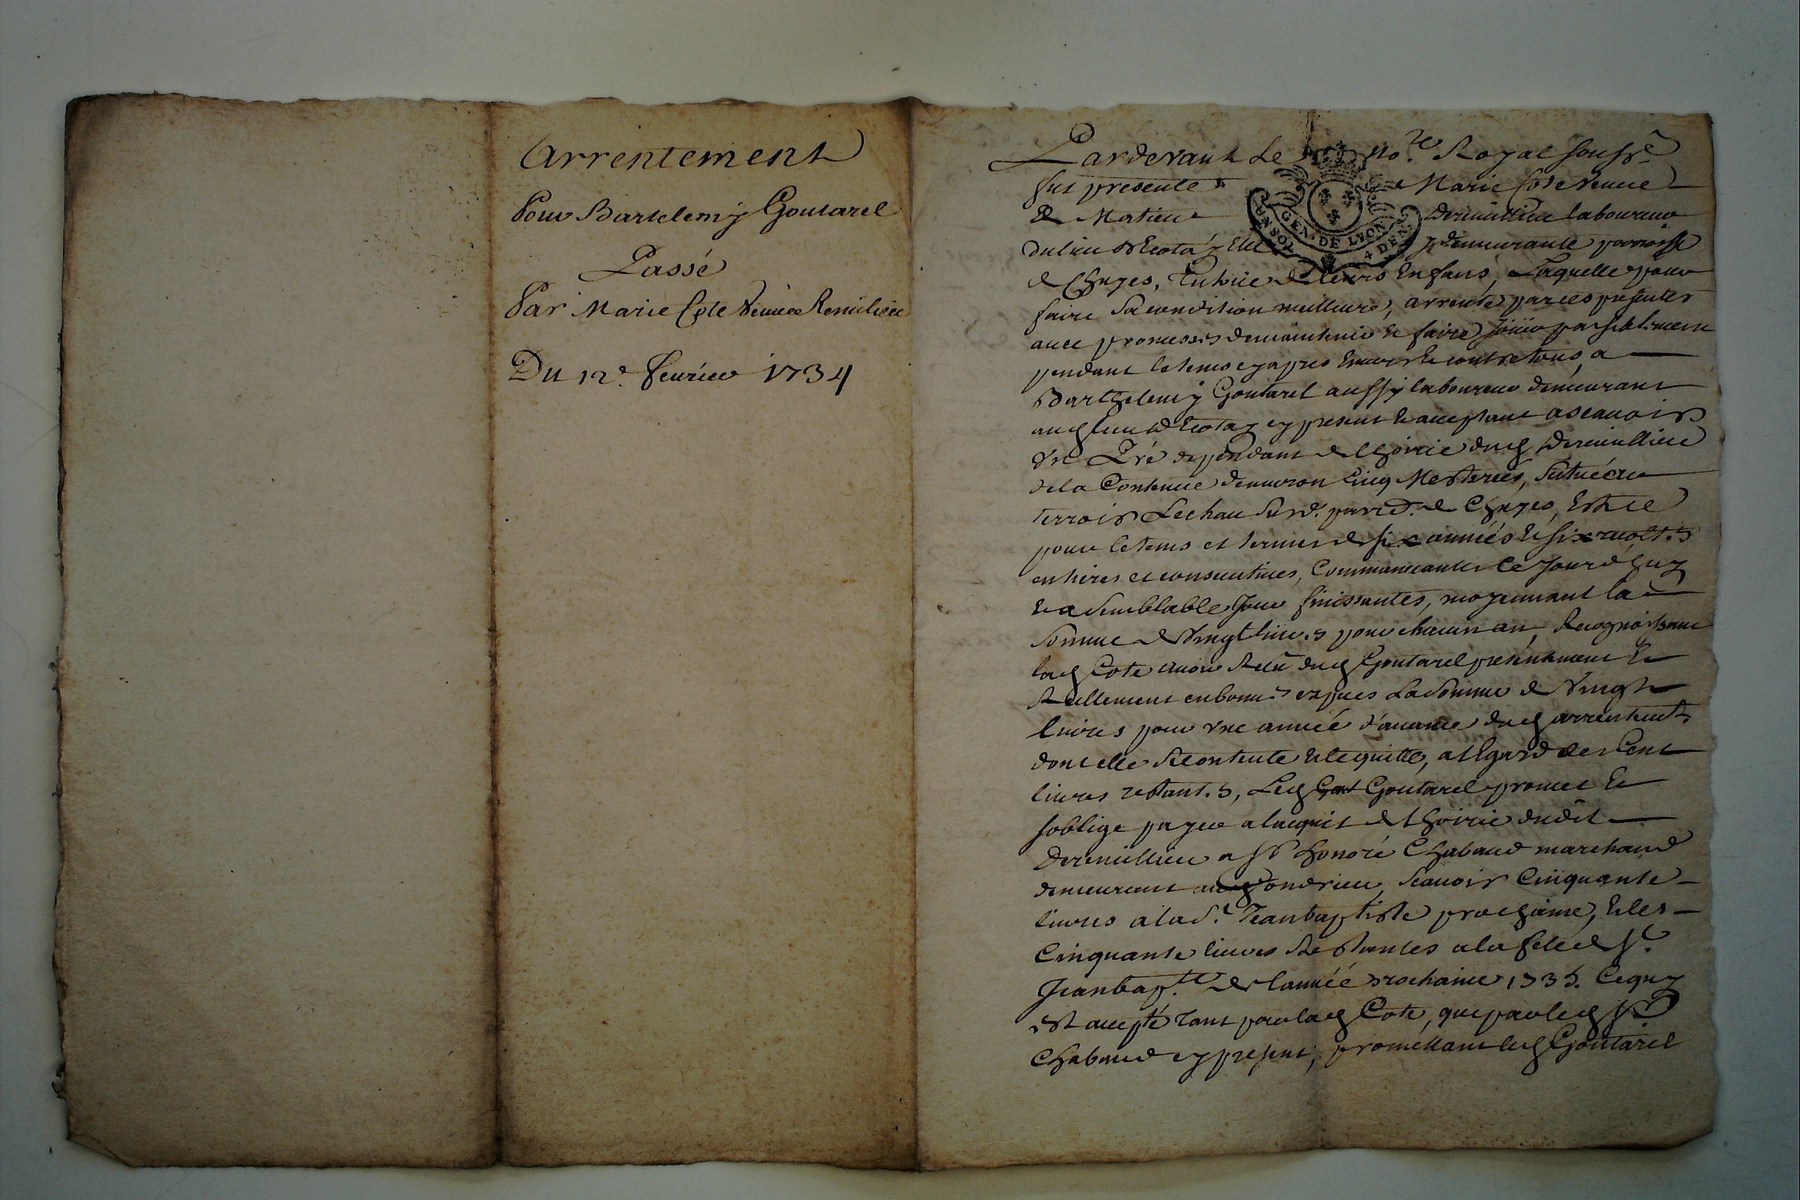 Arrentement
Pour Bartelemy Goutarel
Passé
Par Marie Cote Veuve Remilieu
Du 12e. feurier 1734
Pardevant Le No.re Royal soussr.
fut presente Marie Cote veuue
de Matieu Deremillieu laboureur
du lieu y demeurante parroisse
de Chuyes, Tutrice de leurs Enfans, Laquelle pour
faire sa condition meilleure, arrente par ces presentes
auec promesses de maintenir et faire Joüir paisiblement
pendant le tems cy apres Enuers et contre tous, a
Barthelemy Goutarel aussy laboureur demeurant
aud lieu cy present et acceptant ascauoir
Vn Pré dependant de lhoirie dud Deremillieu
de la Contenue denuiron Cinq Mesterées, situé au
terroir parr. de Chuyes, Et ce
pour le tems et terme de six années et six recoltes
entieres et consecutiues, Commancantes ce Jourdhuy
et a semblable Jour finissantes, moyennant la
somme de Vingt liures pour chacun an, Recognoissant
lad Cote auoir Receu dud Goutarel presentement et
Reellement en bonnes especes La somme de Vingt
liures pour vne année d'auance dud arrentement
dont elle se contente et le quitte, a lEgard des Cent
liures restantes, Led Goutarel promet et
soblige payer a lacquit de lhoirie dudit
Deremillieu a sr honoré Chabaud marchand
demeurant Condrieu, scauoir Cinquante
liures a la st. Jean baptiste prochaine, et les
Cinquante liures Restantes a la fete de st.
Jean bapte. de lannée prochaine 1735. Ce qui
est accepté tant par lad Cote, que par led sr
Chabaud cy present, promettant led Goutarel
GEN. DE LYON
4 DEN.